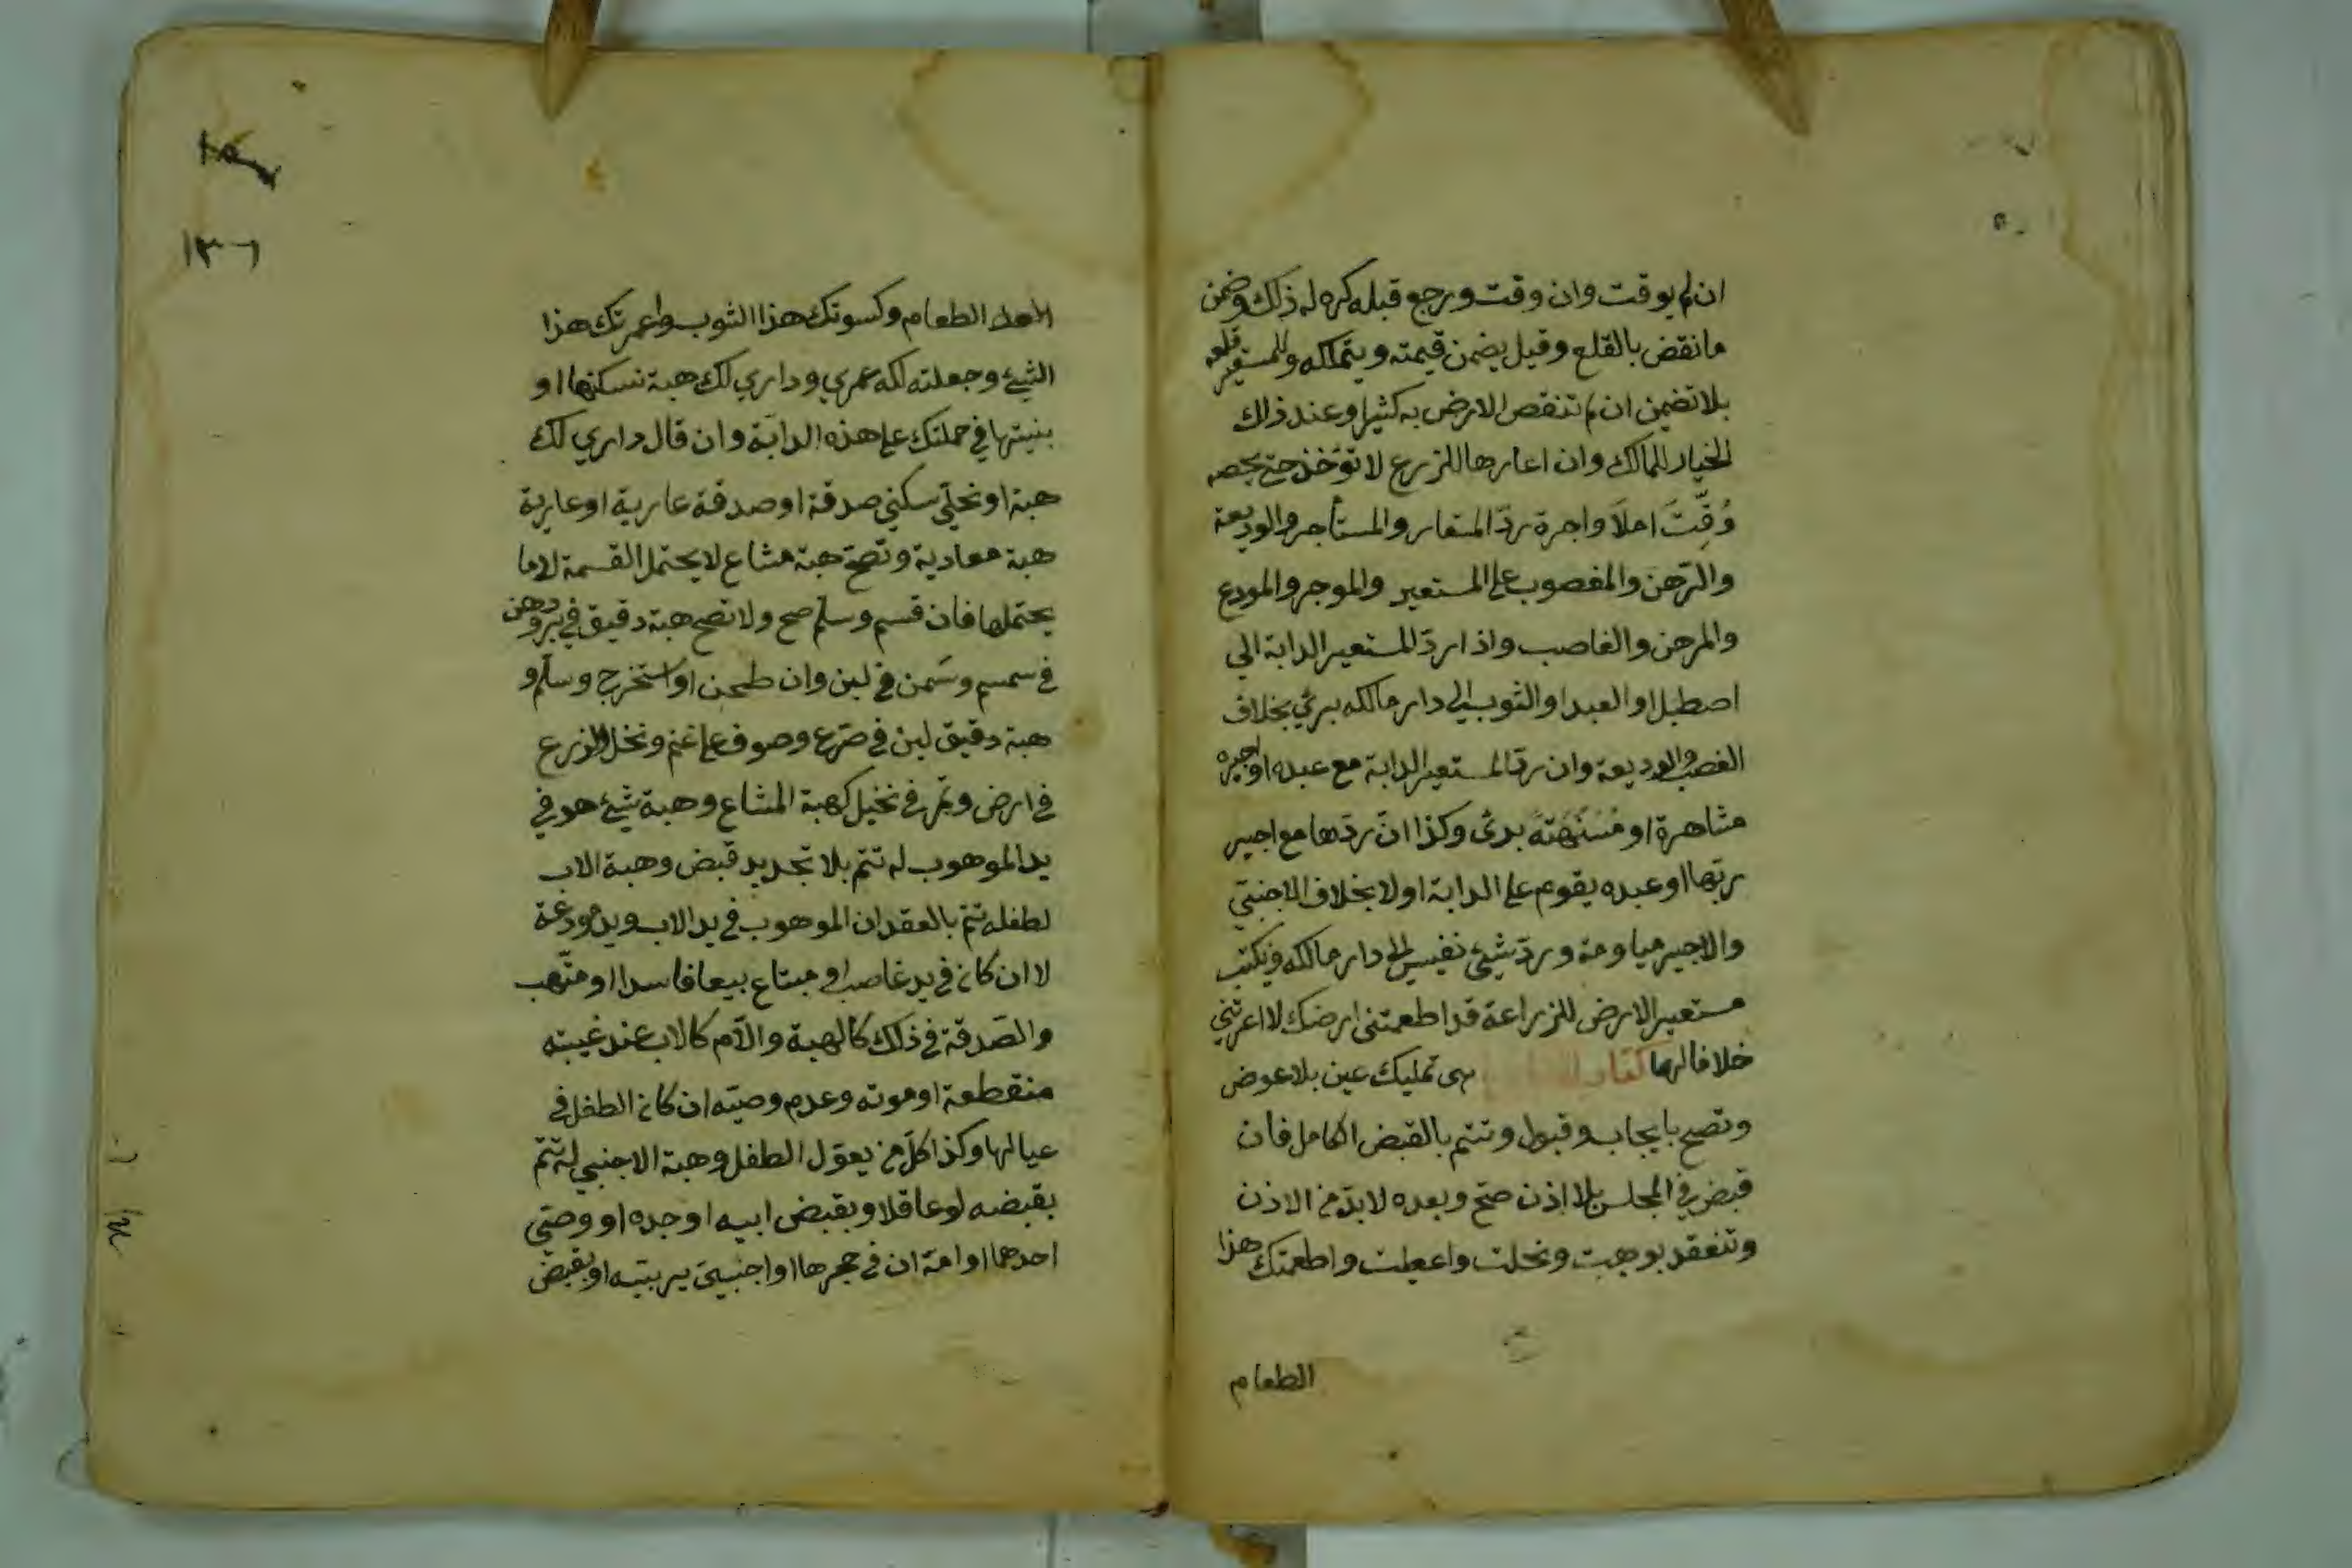 ان لم يوقت وان وقت ورجع قبله كره له ذلك وضمن
ما نقض بالقلع وقيل يضمن قيمته ويتملكه وللمستعير قلعه
بلا تضمين ان لم تنقص الارض به كثيرا وعند ذلك
الخيار للمالك وان اعارها للزرع لا تؤخذ حتى يحصد
وُقِّتَ اولا واجرة ردّ المتعار والمستأجر والوديعة
والرّهن والمغصوب على المستعير والموجر والمودع
والمرهن والغاصب واذا ردّ المستعير الدابة الى
اصطبل او العبد او الثوب الى دار مالكه برئ بخلاف
الغصب والوديعة وان ردّ المستعير الدابة مع عبده او اجيره
مشاهرة او مسنهة برئ وكذا ان ردّها مع اجير
ربّها او عبده يقوم على الدابة اولا بخلاف الاجنبيّ
والاجير مياومة وردّ شيئ نفيس الى دار مالكه ويكتب
مستعير الارض للزراعة قد اطعمتنى ارضك لا اعرتني
خلافا لهما كتاب هى تمليك عين بلا عوض
وتصح بايجاب وقبول وتتم بالقبض الكامل فان
قبض في المجلس بلا اذن صحّ وبعده لا بدّ من الاذن
وتنعقد بوهبت ونحلت واعطيت واطعمتك هذا
الطعام
١٣٠٦
الطعام وكسوتك هذا الثوب واعمرتك هذا
الشيئ وجعلته لك عمري وداري لك هبة تسكنها او
بنيتها في حملتك على هذه الدابّة وان قال داري لك
هبة او نحلي سكني صدقة او صدقة عارية او عارية
هبة فعارية وتصحّ هبة مشاع لا يحتمل القسمة لا ما
يحتملها فان قسم وسلم صح ولا تصح هبة دقيق في بر ودهن
في سمسم وسَمن في لبن وان طحن او استخرج وسلّم و
هبة دقيق لبن في ضرع وصوف على غنم ونخل والزرع
في ارض وتمر في نخيل كهبة المشاع وهبة شيئ هو في
يد الموهوب له تتم بلا تجديد قبض وهبة الاب
لطفله تتم بالعقد ان الموهوب في يد الاب ويد مودعة
لا ان كان في يد غاصب او مبتاع بيعا فاسدا او متّهب
والصّدقة في ذلك كالهبة والاّم كالاب عند غيبته
منقطعة او موته وعدم وصيّه ان كان الطفل في
عيالها وكذا كلّ من يعوّل الطفل وهبة الاجنبي له تتم
بقبضه لو عاقلا وبقبض ابيه او جده او وصيّ
احدهما او امّه ان في حجرها او اجنبيّ يربيّه او بقبض